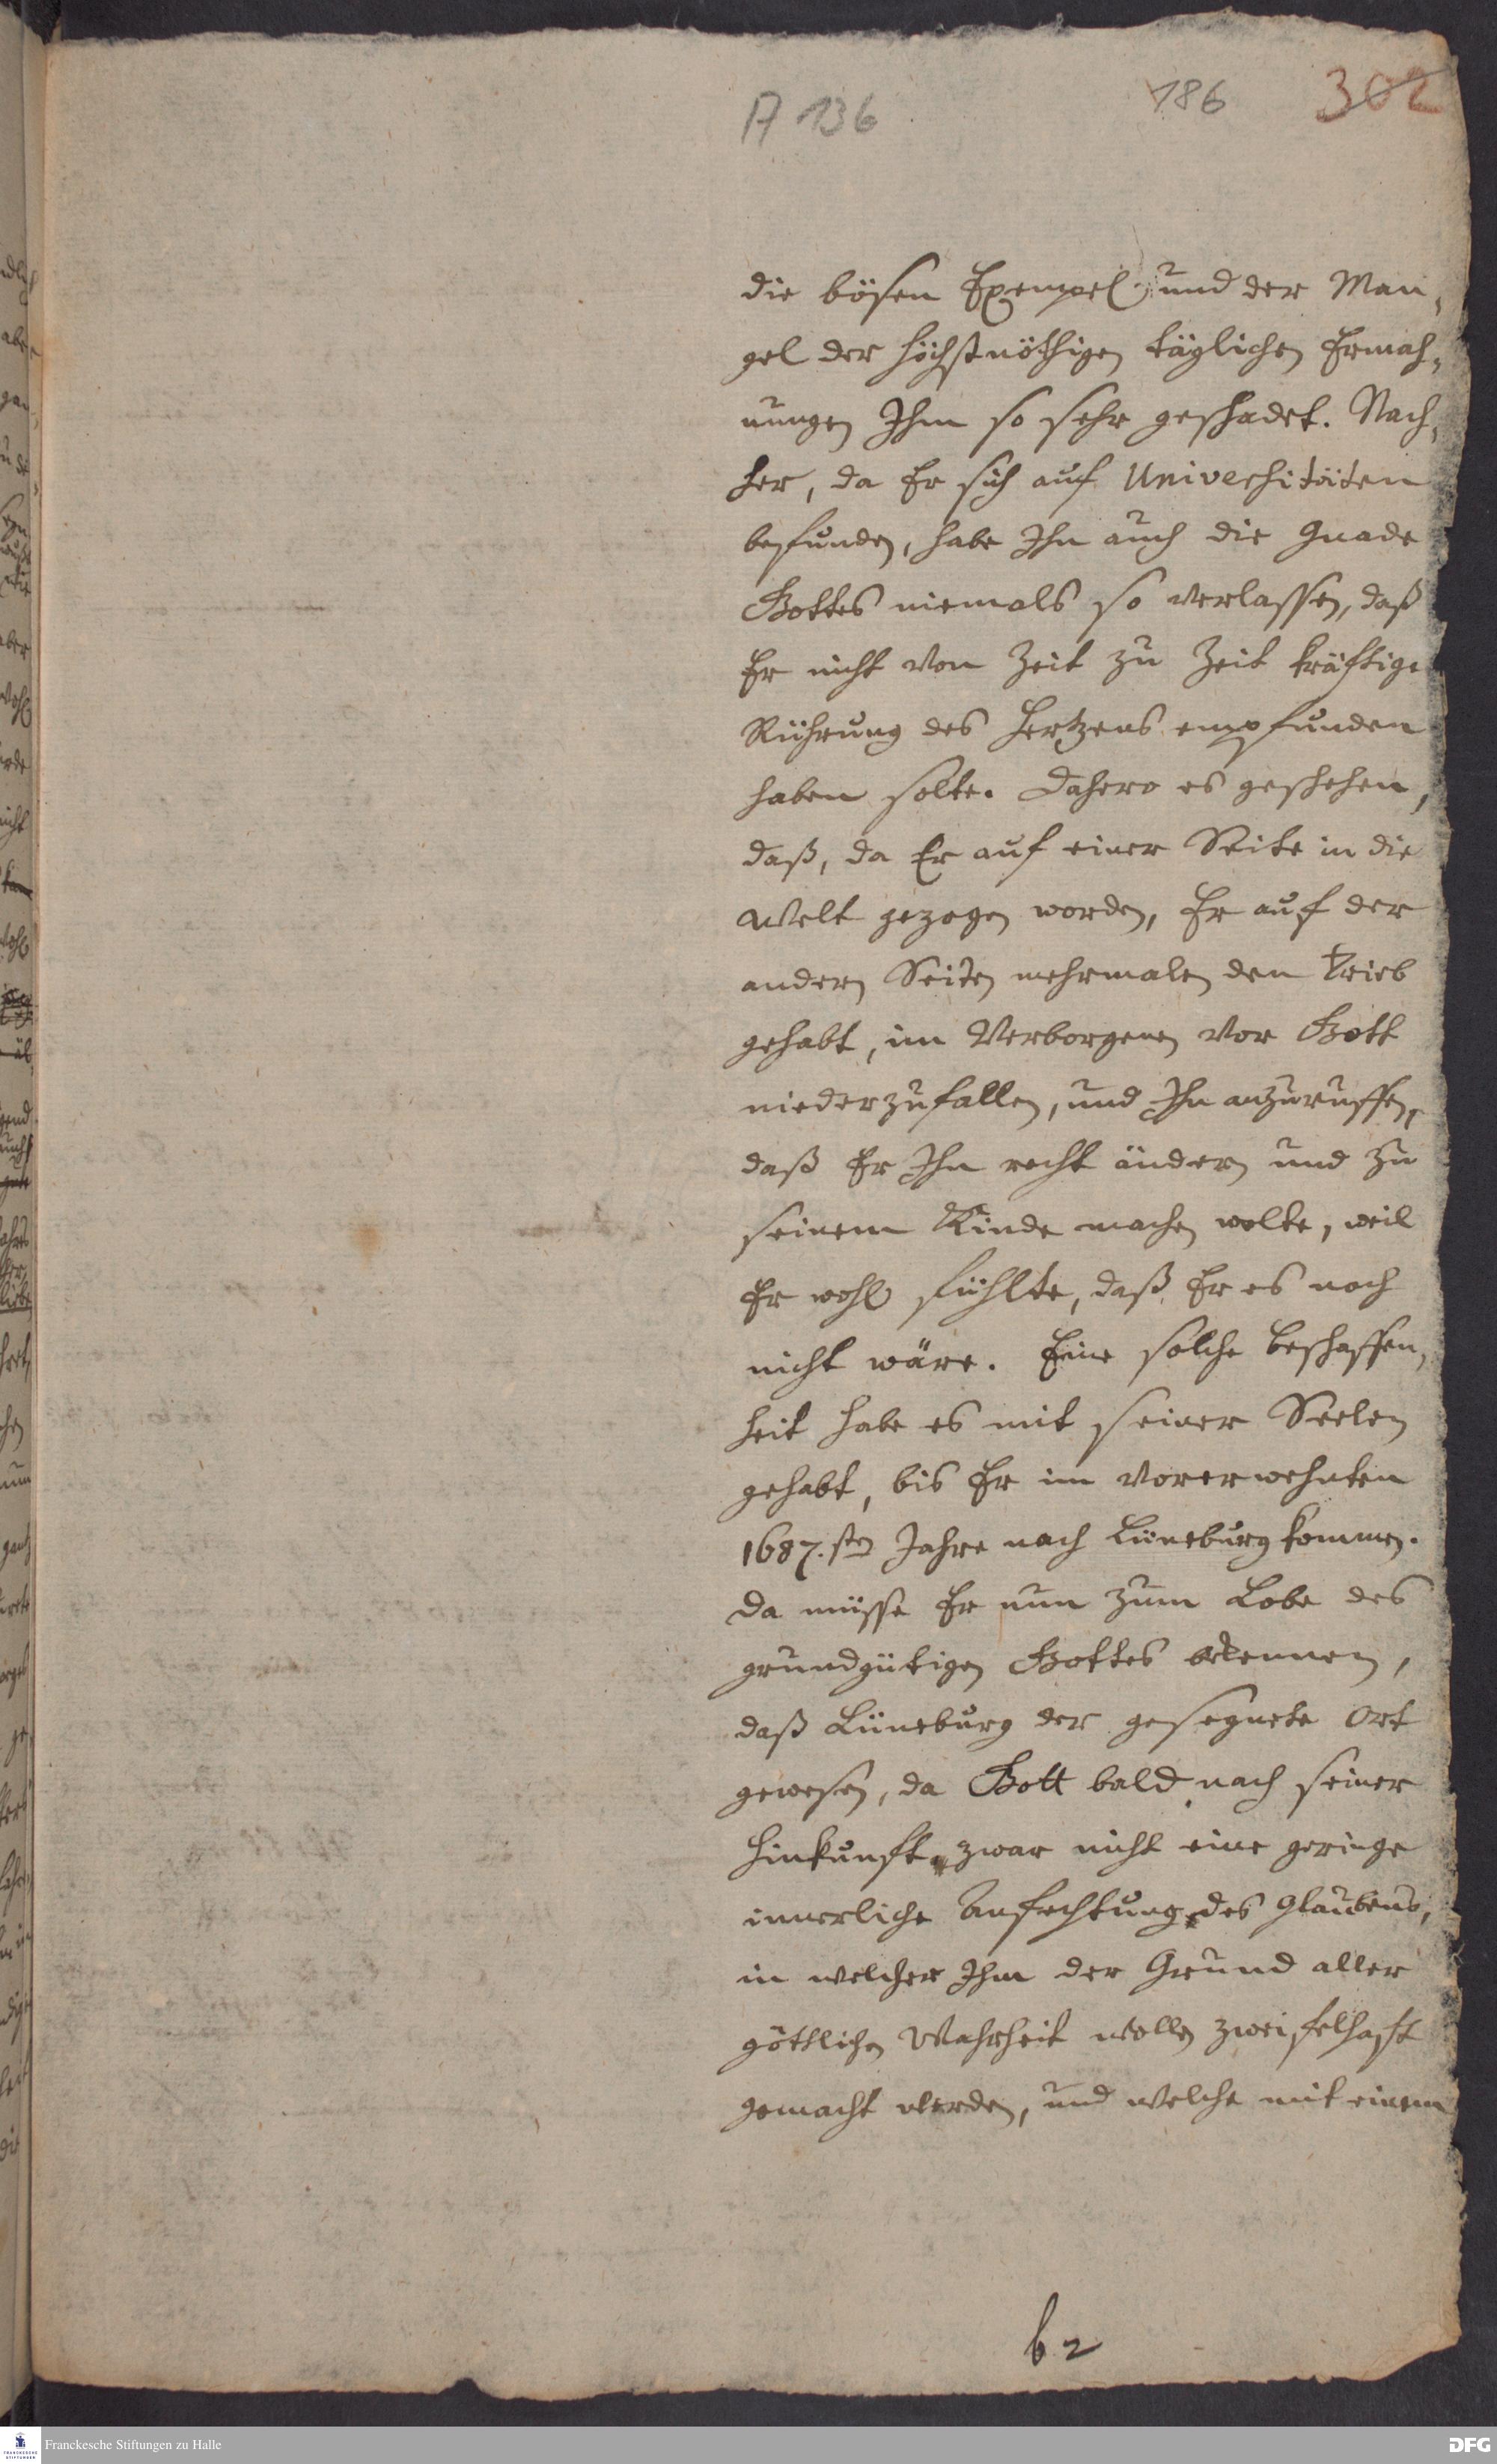 A 136
186
302
die bösen Exempel, und der Man-
gel der höchstnöthigen täglichen Ermah-
nungen Ihm so sehr geschadet. Nach-
her, da Er sich auf Universitäten
befunden, habe Ihn auch die Gnade
Gottes niemals so verlassen, daß
Er nicht von Zeit zu Zeit kräftige
Rührung des Hertzens empfunden
haben solte. Dahero es geschehen,
daß, da Er auf einer Seite in die
Welt gezogen worden, Er auf der
andern Seiten mehrmalen den Trieb
gehabt, im Verborgenen vor Gott
niederzufallen, und Ihn anzuruffen,
daß Er Ihn recht ändern und zu
seinem Kinde machen wolte, weil
Er wohl fühlte, daß Er es noch
nicht wäre. Eine solche Beschaffen-
heit habe es mit seiner Seelen
gehabt, bis Er im vorerwehnten
1687.sten Jahre nach Lüneburg kommen.
Da müsse Er nun zum Lobe des
grundgütigen Gottes erkennen,
daß Lüneburg der gesegnete Ort
gewesen, da Gott bald nach seiner
Hinkunft zwar nicht eine geringe
innerliche Anfechtung des Glaubens,
in welcher Ihm der Grund aller
göttlichen Wahrheit wollen zweifelhaft
gemacht werden, und welche mit einem
b 2
Franckesche Stiftungen zu Halle
DFG